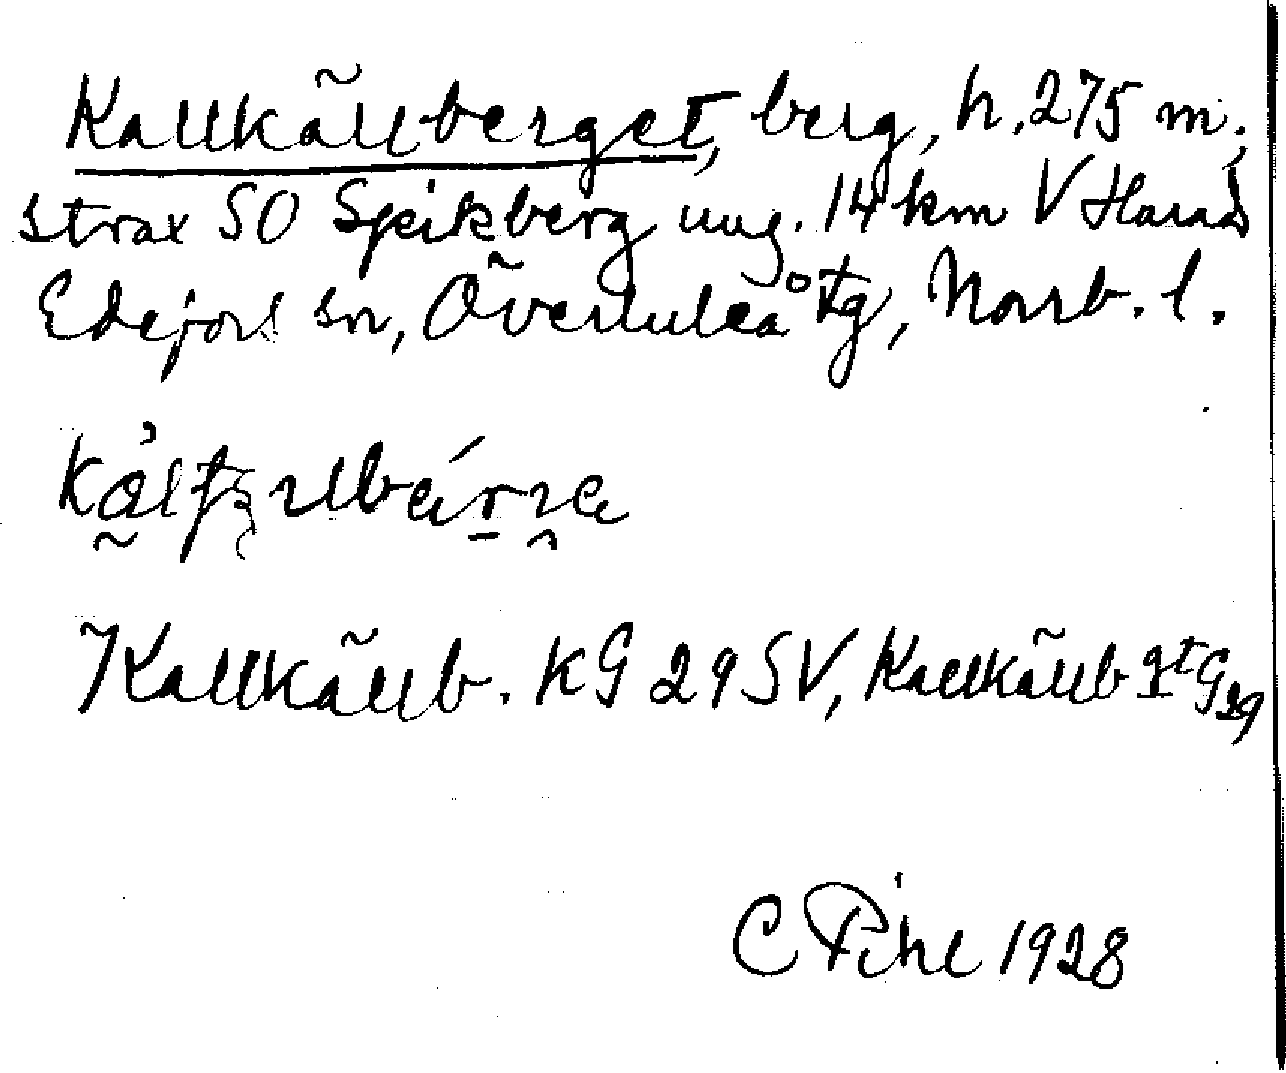 Kallkällberget, berg, h. 275 m;
strax SO Spikberg ung. 14 km V Harads
Edefors sn, Överluleå tg, Norrb. l.
Kallkällb. KG 29 SV, Kallkällb GSt G 29
C Pihl 1928